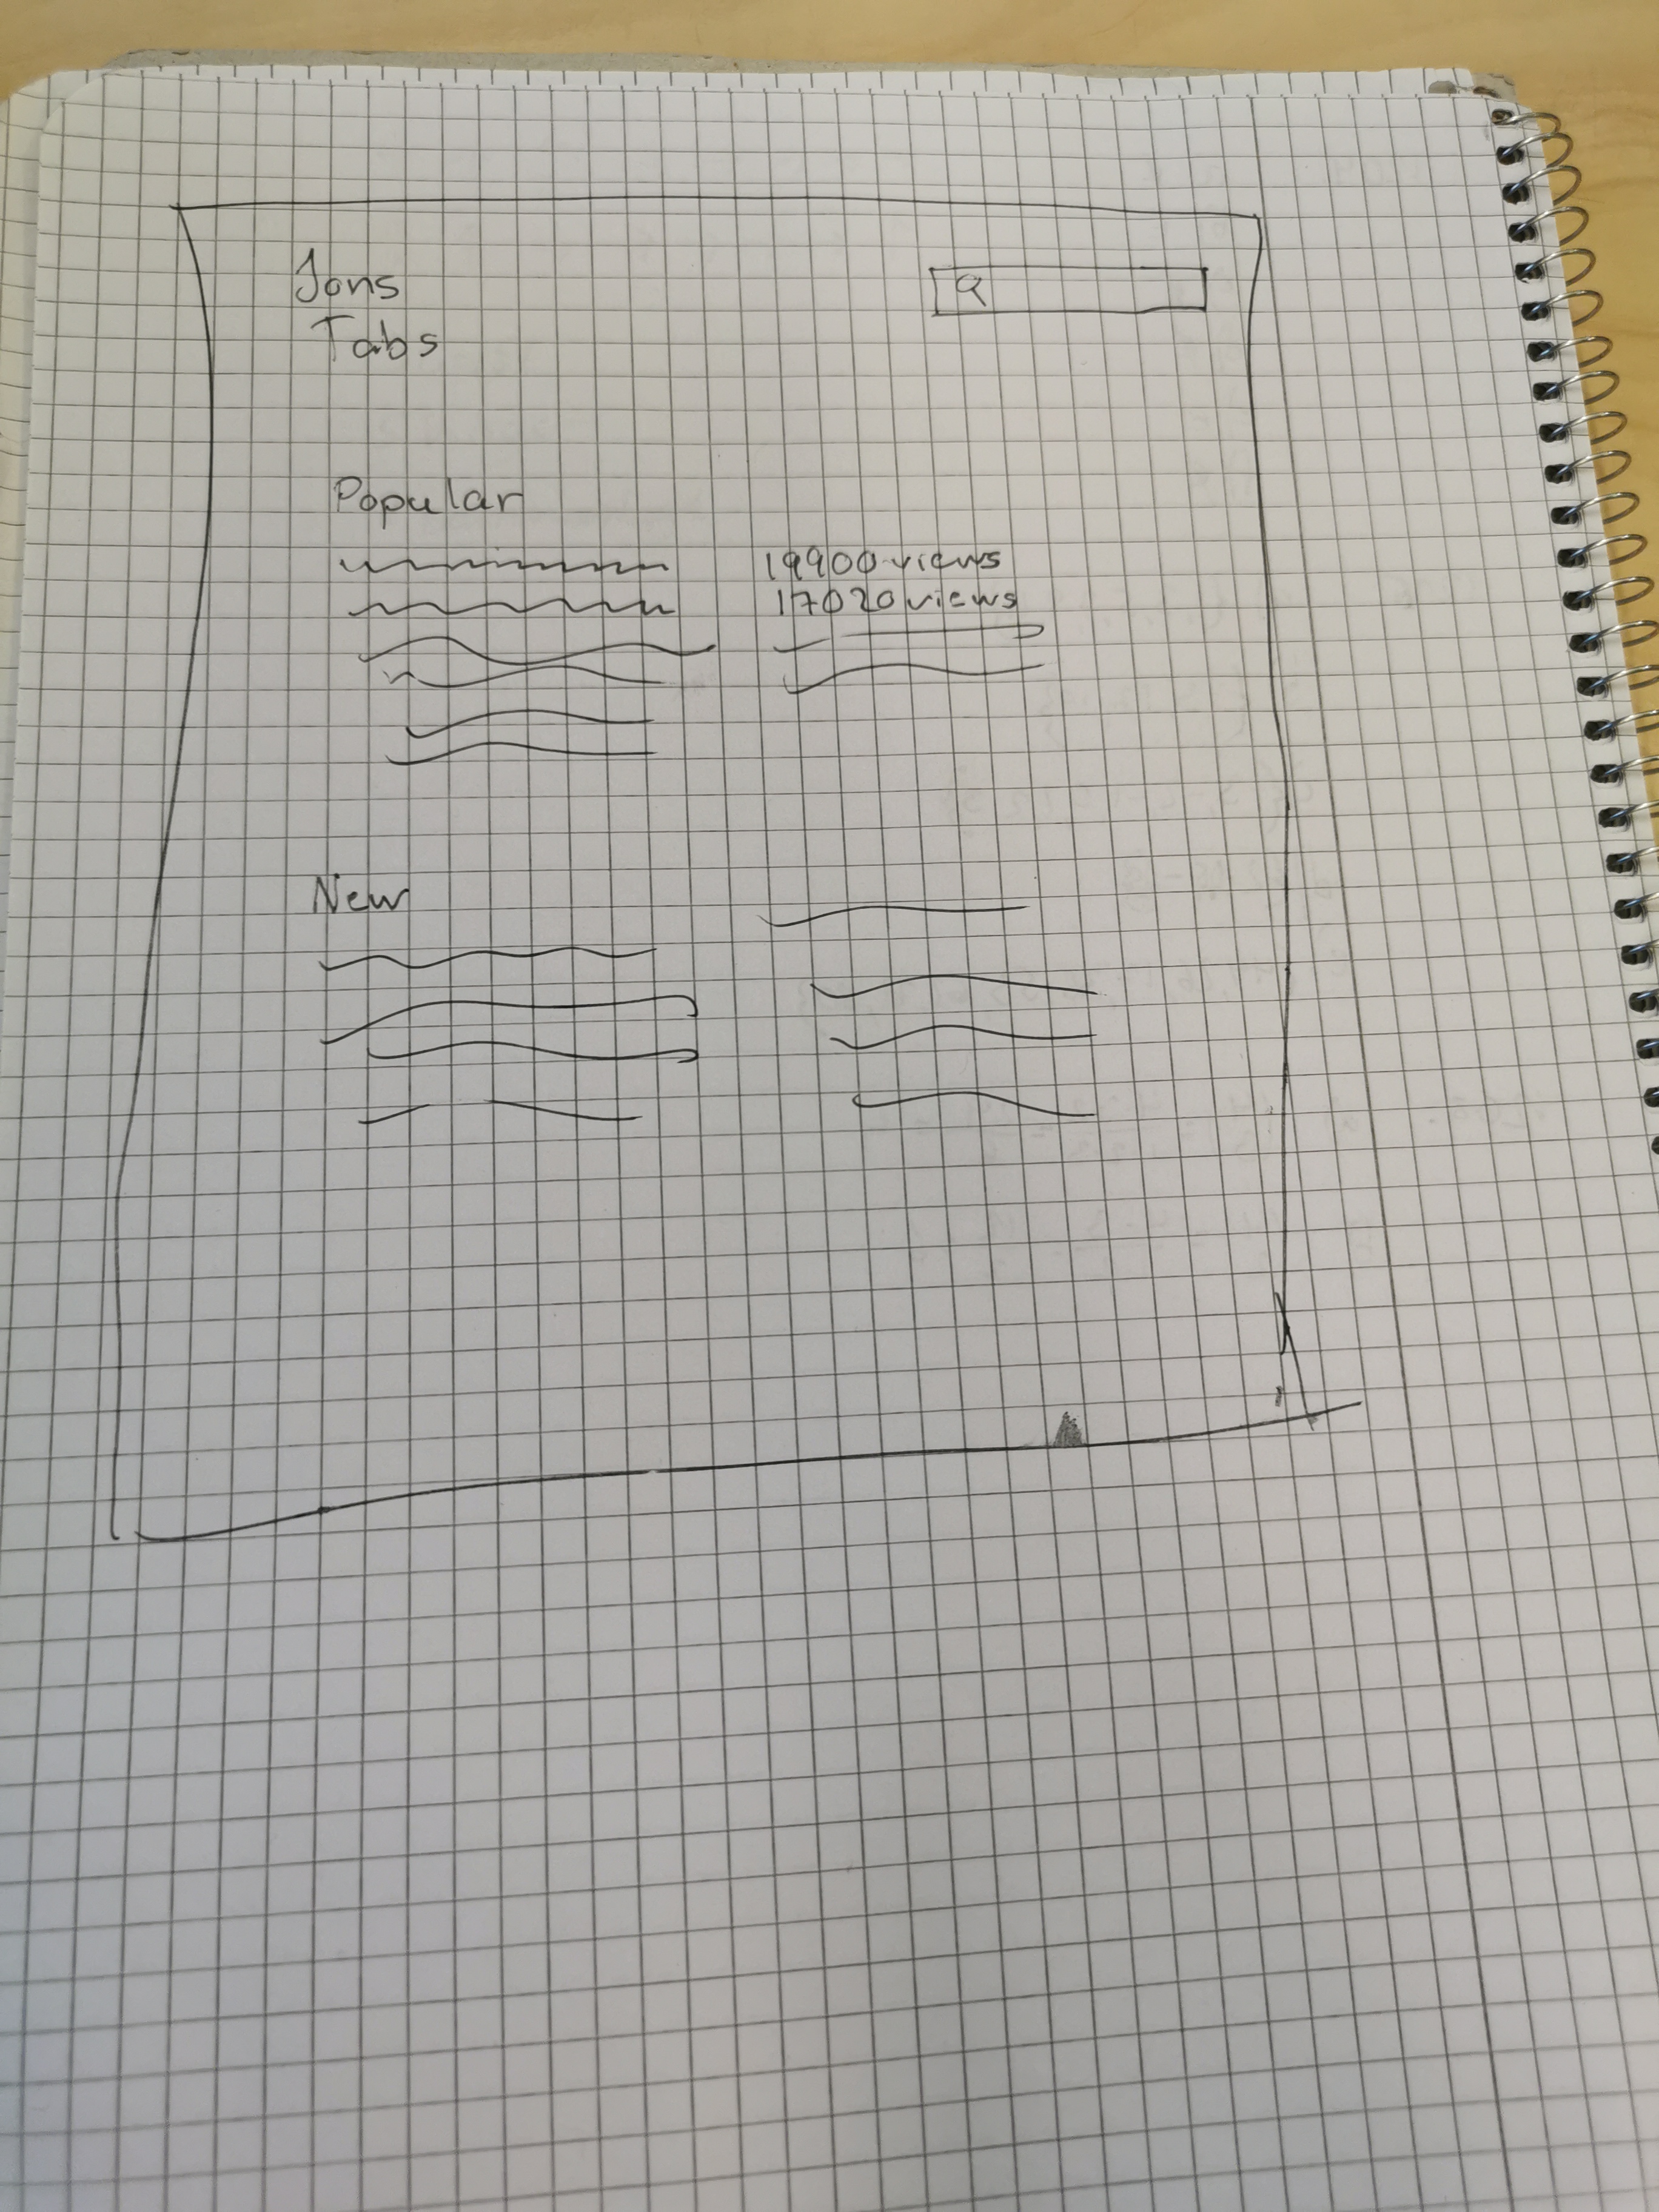 Jons
Tabs
Popular
19900 views
17020 views
New